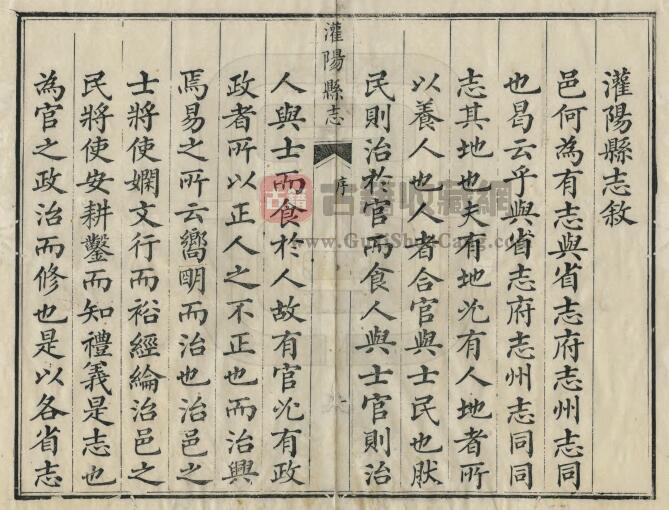 灌陽縣志敘
邑何為有志與省志府志州志同
也曷云乎與省志府志州志同同
志其地也夫有地必有人地者所
以養人也人者合官與士民也肰
民則治於官而食人與士官則治
灌陽縣志
序
人與士而食於人故有官必有政
政者所以正人之不正也而治興
焉易之所云嚮明而治也治邑之
士將使嫻文行而裕經綸治邑之
民將使安耕鑿而知禮義是志也
為官之政治而修也是以各省志
古籍
古籍收藏網
www.GuJiShuCang.com